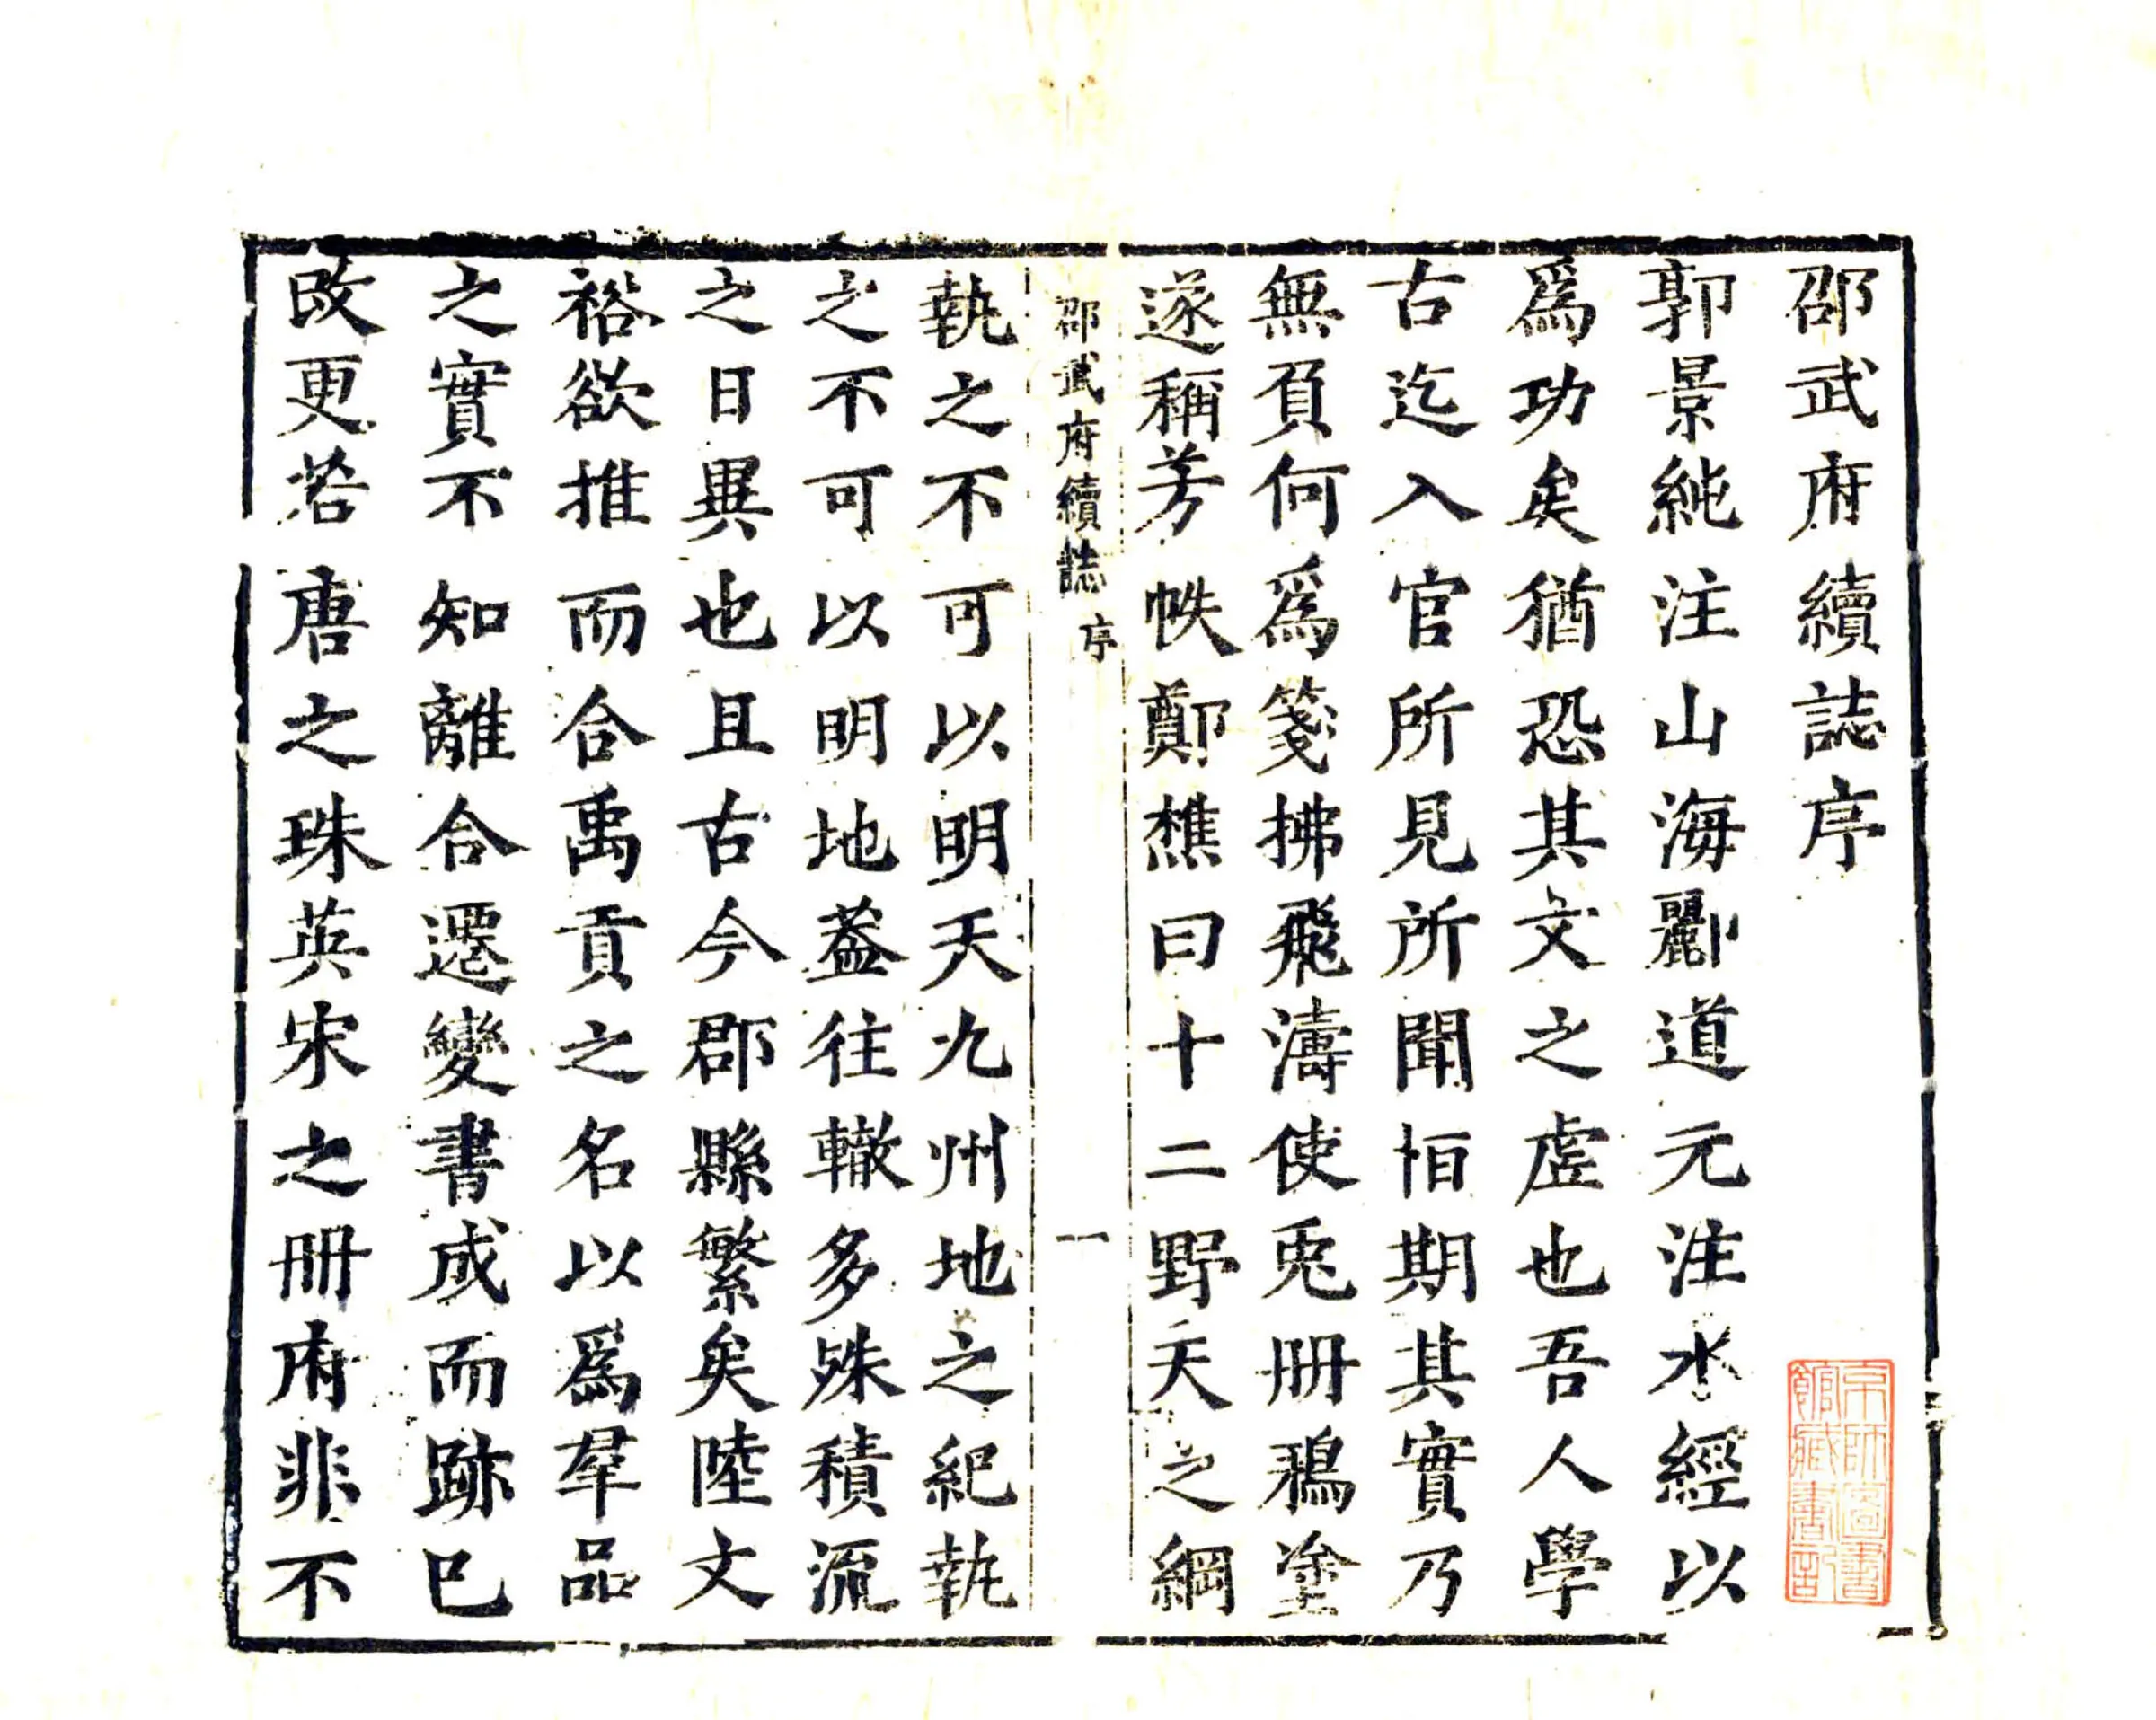 邵武府續誌序
郭景純注山海酈道元注水經以
爲功矣猶恐其文之虛也吾人學
古迄入官所見所聞怕期其實乃
無頁何爲箋拂飛濤使兎册鴉塗
遂稱芳帙鄭樵曰十二野天之綱
邵武府續誌 序 一
執之不可以明天九州地之紀執
之不可以明地葢往轍多殊積流
之日異也且古今郡縣繁矣陸文
裕欲推而合禹貢之名以爲羣品
之實不知離合遷變書成而跡已
改更若唐之珠英宋之册府非不
京師圖書
館藏書記